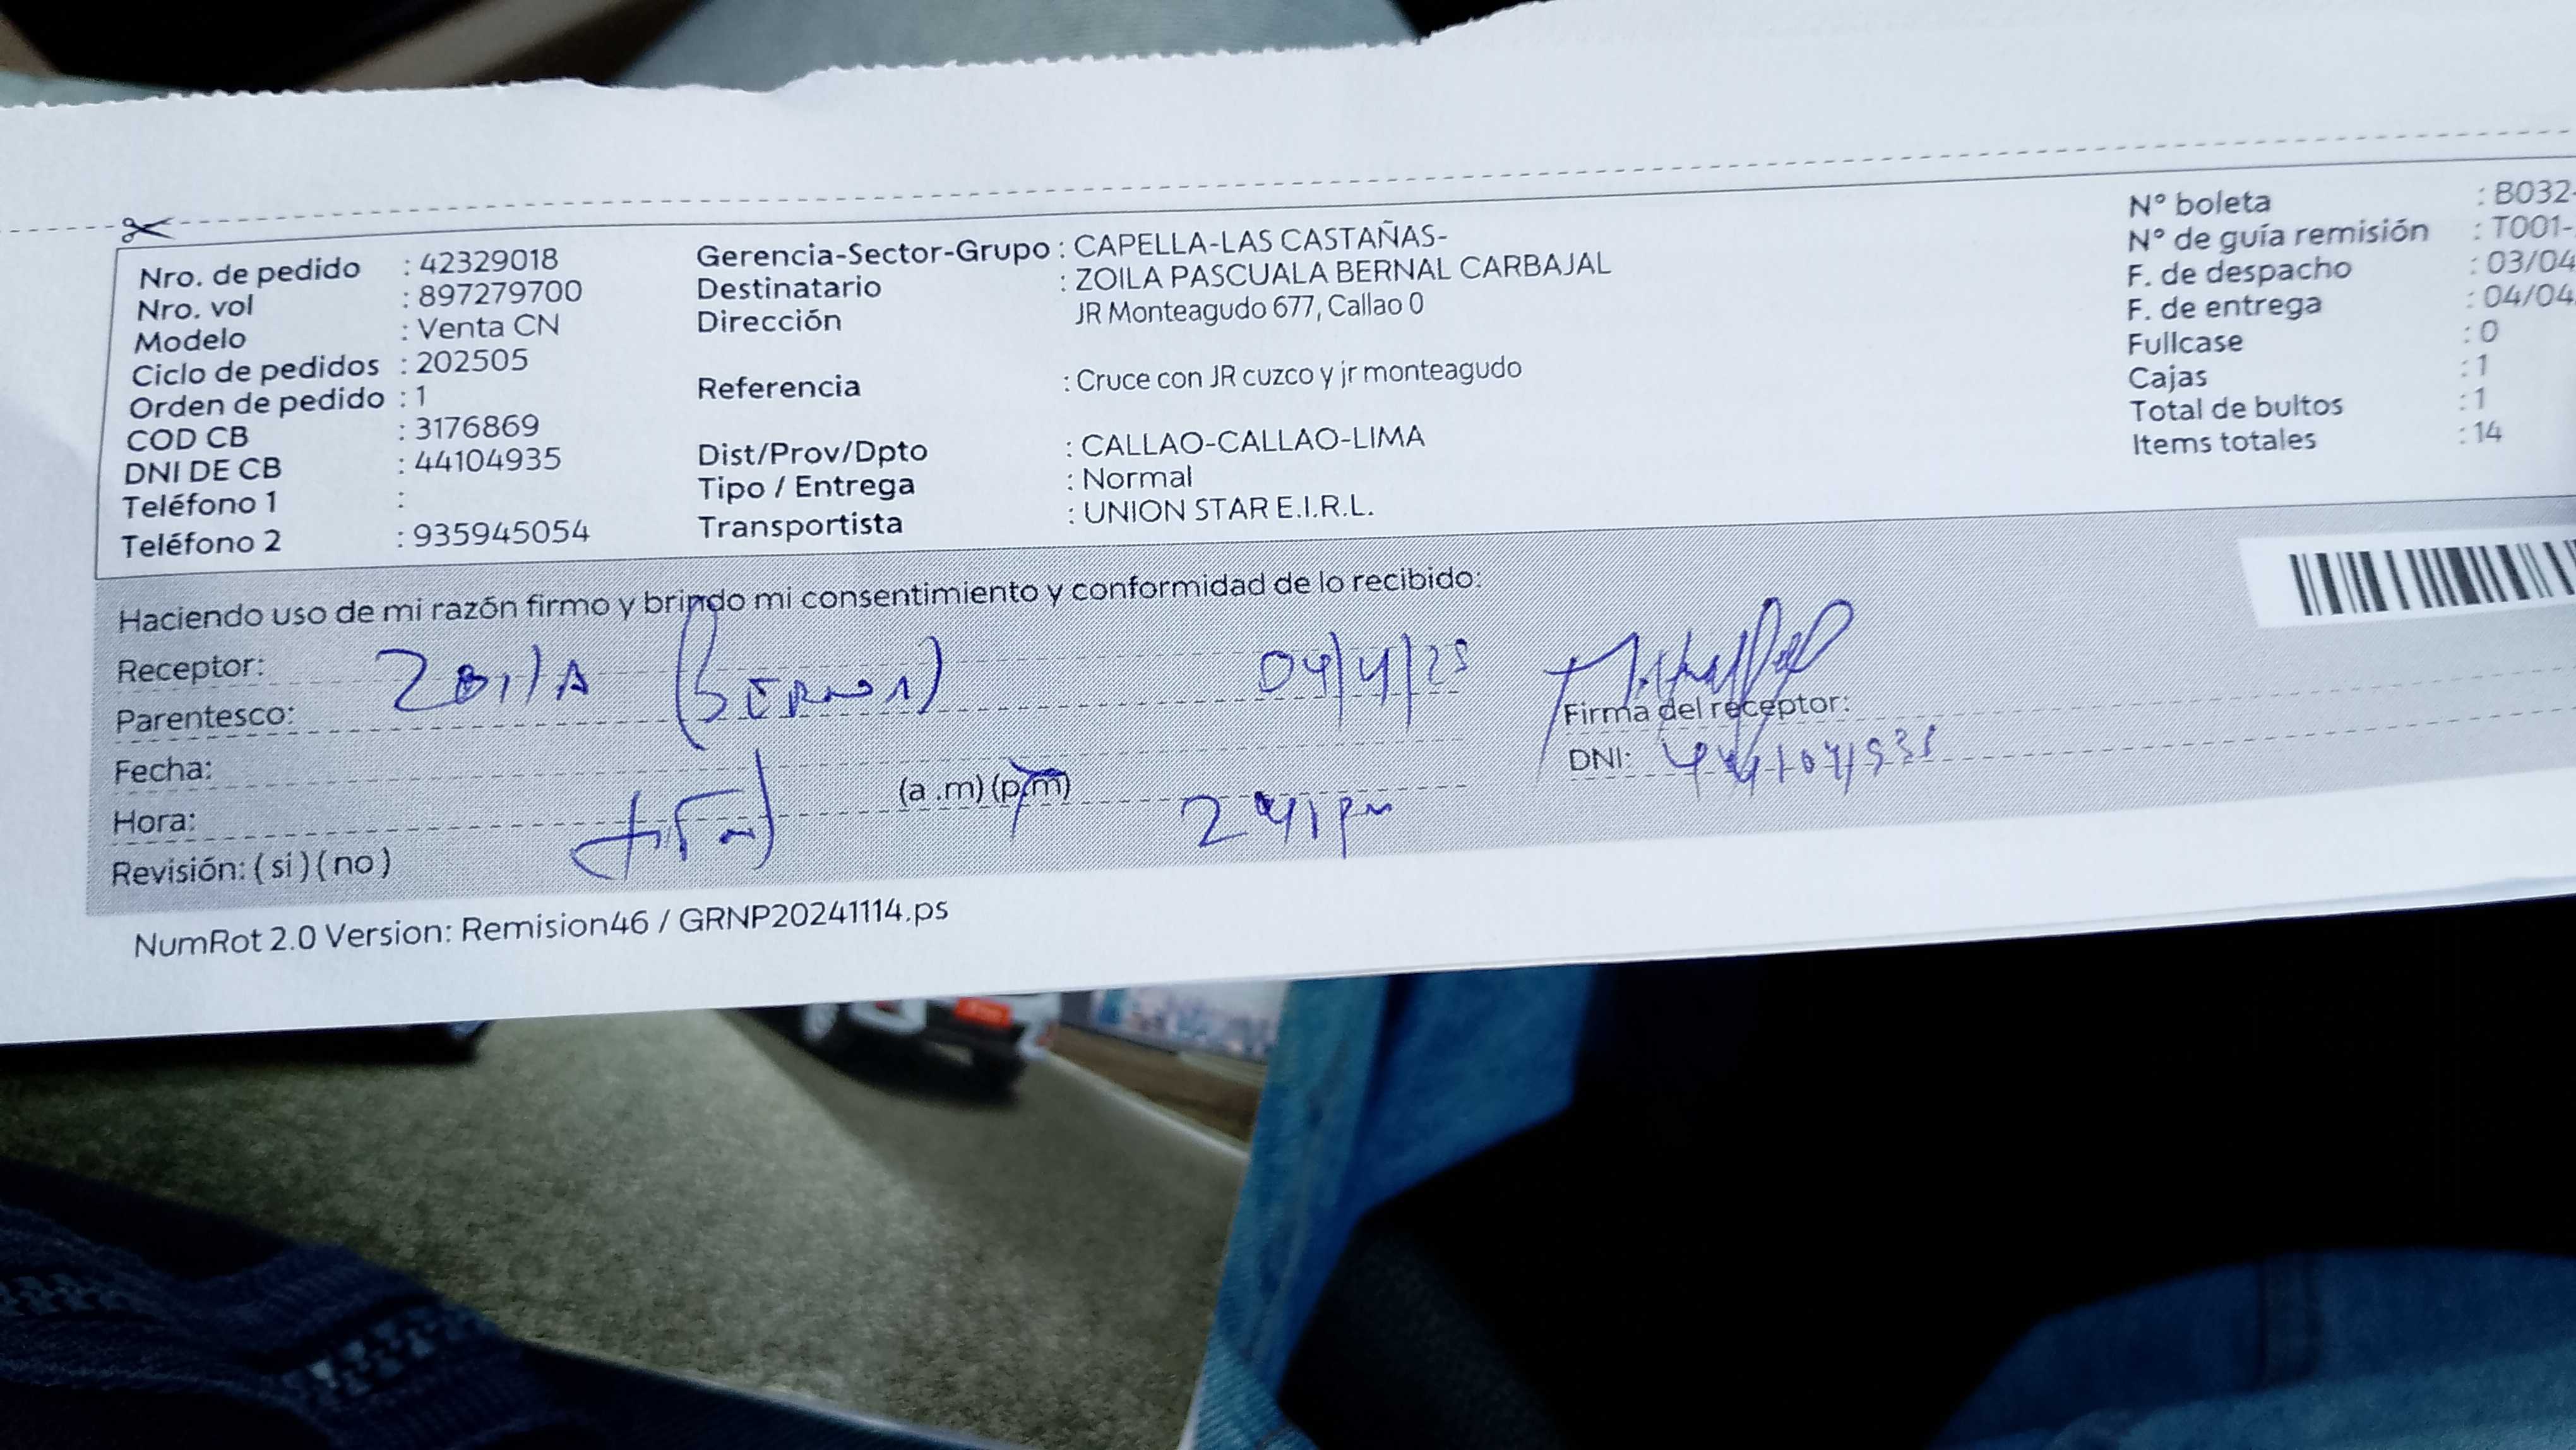 Nro. de pedido : 42329018
Nro. vol : 897279700
Modelo : Venta CN
Ciclo de pedidos : 202505
Orden de pedido : 1
COD CB : 3176869
DNI DE CB : 44104935
Teléfono 1 :
Teléfono 2 : 935945054
Gerencia-Sector-Grupo : CAPELLA-LAS CASTAÑAS-
Destinatario : ZOILA PASCUALA BERNAL CARBAJAL
Dirección JR Monteagudo 677, Callao 0
Referencia : Cruce con JR cuzco y jr monteagudo
Dist/Prov/Dpto : CALLAO-CALLAO-LIMA
Tipo / Entrega : Normal
Transportista : UNION STAR E.I.R.L.
N° boleta : B032-
N° de guía remisión : T001-
F. de despacho : 03/04
F. de entrega : 04/04
Fullcase : 0
Cajas : 1
Total de bultos : 1
Items totales : 14
Haciendo uso de mi razón firmo y brindo mi consentimiento y conformidad de lo recibido:
Receptor: Zoila 04/4/25
Parentesco:
Firma del receptor:
Fecha:
DNI:
Hora: (a .m) (p.m) 2 41 pm
Revisión: ( si ) ( no )
NumRot 2.0 Version: Remision46 / GRNP20241114.ps